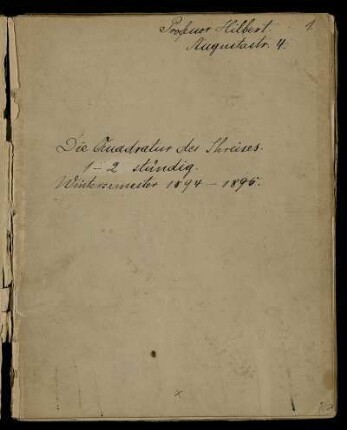 Professor Hilbert. 1.
Augustastr. 4.
Die Quadratur des Kreises.
1–2 stündig.
Wintersemester 1894–1895.